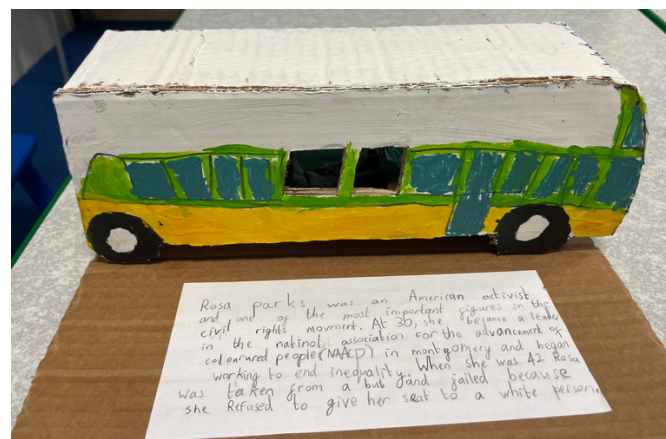 Rosa parks was an American activist
and one of the most important figures in the
civil rights movment. At 30, she became a leader
in the natinol association for the advancement of
colouured people (NAACP) in montgomery and began
working to end inequality. When she was 42 Rosa
was taken from a bus and jailed because
she Refused to give her seat to a white person.